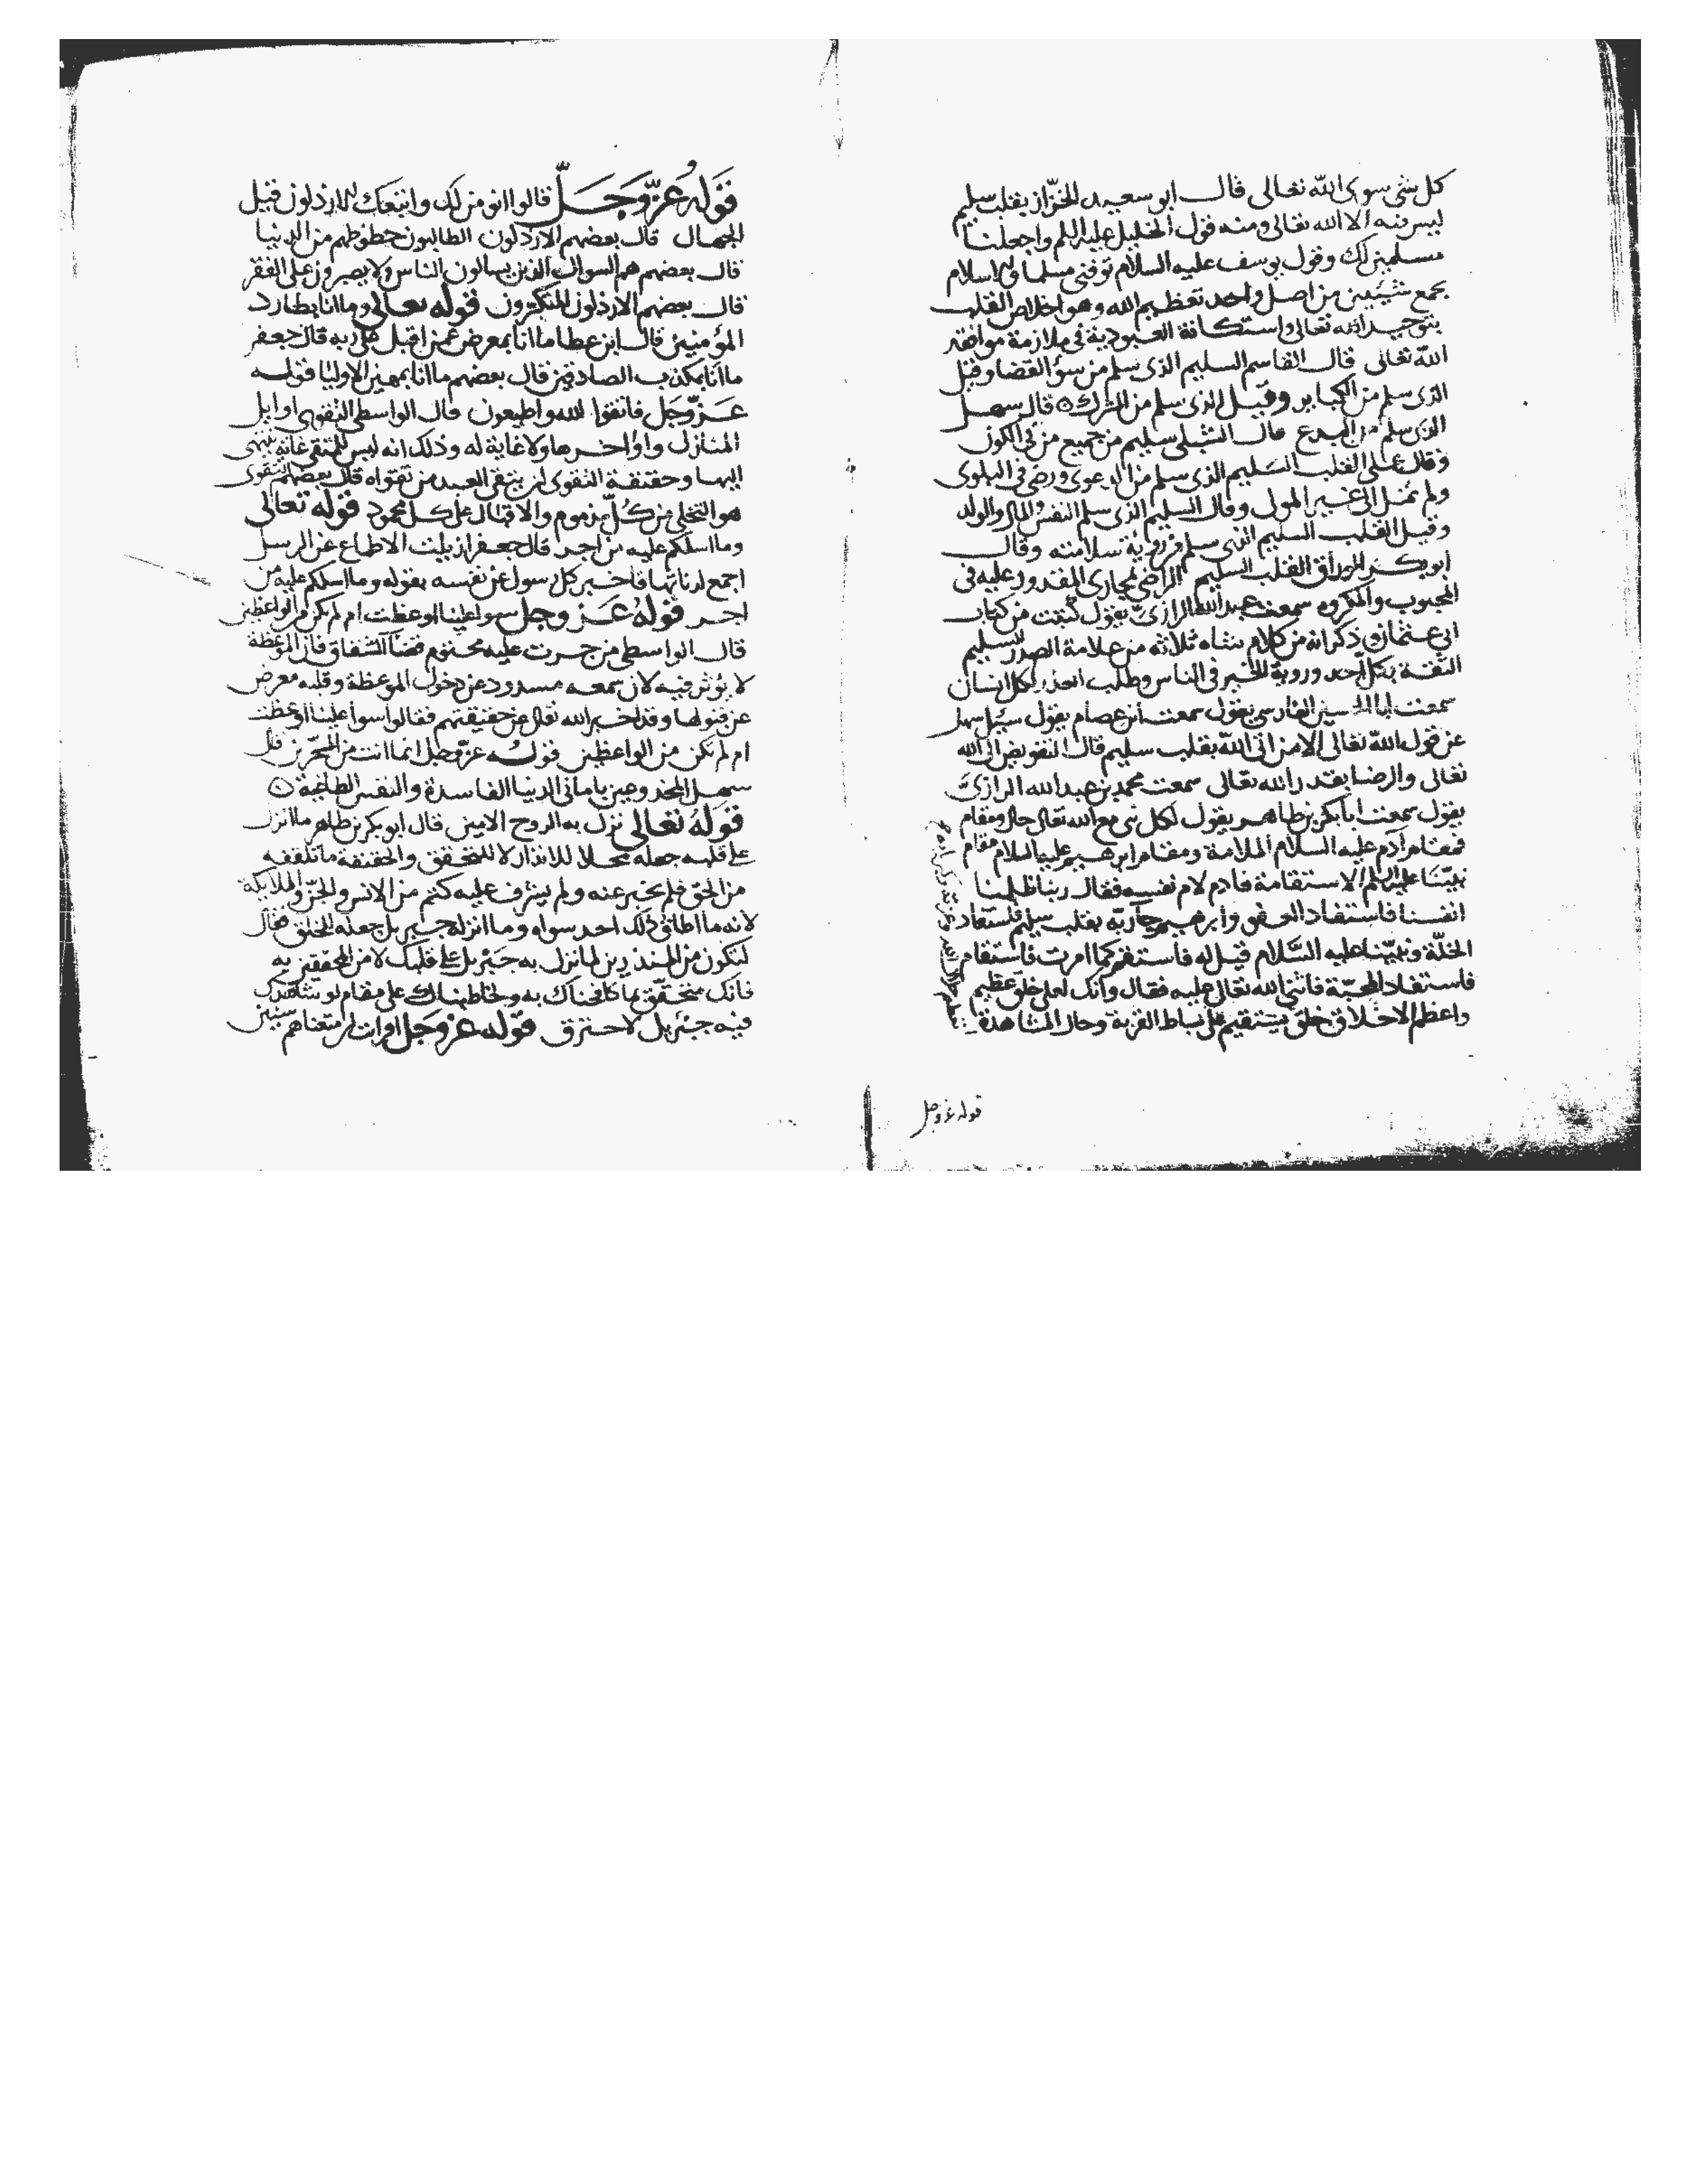 كل شئ سوى الله تعالى قال ابو سعيد الخراز بقلب سليم
ليس فيه الا الله تعالى ومنه قول الخليل عليه السلم واجعلنا
مسلمين لك وقول يوسف عليه السلام توفني مسلما والاسلام
يجمع شيئين من اصل واحد تعظيم الله وهو اخلاص القلب
بتوحيد الله تعالى واستكانة العبودية في ملازمة موافقة
الله تعالى قال القاسم السليم الذي سلم من سؤ القضا وقيل
الذي سلم من الكباير وقيل الذي سلم من الشرك قال سهل
الذي سلم من البدع قال الشبلي سليم من جميع من في الكون
وقال على القلب السليم الذي سلم من الدعوى ورضى في البلوى
ولم تمل الى غير المولى وقال السليم الذي سلم النفس والمال والولد
وقيل القلب السليم الذي سلم من روية سلامته وقال
ابو بكر الوراق القلب السليم الراضي بمجارى المقدور عليه في
المحبوب والمكروه سمعت عبد الله الرازى يقول كتبت من كتاب
ابي عثمان وذكر انه من كلام شاه ثلاثة من علامة الصدر السليم
الثقة بكل احد وروية الخير في الناس وطلب العذر لكل انسان
سمعت ابا الحسين الفارسي يقول سمعت ابن عصام يقول سيل سهل
عن قول الله تعالى الا من اتى الله بقلب سليم قال التفويض الى الله
تعالى والرضا بقدر الله تعالى سمعت محمد بن عبد الله الرازى
يقول سمعت ابا بكر بن طاهر يقول لكل نبي مع الله تعالى حال ومقام
فمقام آدم عليه السلام الملامة ومقام ابرهيم عليه السلام مقام
نبينا عليه السلم الاستقامة فادم لام نفسه فقال ربنا ظلمنا
انفسنا فاستفاد العفو وابرهيم جآ ربه بقلب سليم فاستفاد
الخلة ونبينا عليه السلام قيل له فاستقم كما امرت فاستقام
فاستفاد المحبة فاثنى الله تعالى عليه فقال وانك لعلى خلق عظيم
واعظم الاخلاق خلق يستقيم على بساط القربة وحال المشاهدة
قوله عز وجل
قوله عز وجل قالوا انومن لك واتبعك الارذلون قيل
الجهال قال بعضهم الارذلون الطالبون حظوظهم من الدنيا
قال بعضهم هم السوال الذين يسالون الناس ولا يصبرون على الفقر
قال بعضهم الارذلون المتكبرون قوله تعالى وما انا بطارد
المؤمنين قال ابن عطا ما انا بمعرض عمن اقبل على ربه قال جعفر
ما انا بمكذب الصادقين قال بعضهم ما انا بمهين الاوليا قوله
عز وجل فاتقوا الله واطيعون قال الواسطى التقوى اوايل
المنازل واواخرها ولا غاية له وذلك انه ليس للمتقي غاية ينتهى
اليها وحقيقة التقوى ان يتقى العبد من تقواه قال بعضهم التقوى
هو التخلي من كل مذموم والاقبال على كل محمود قوله تعالى
وما اسلكم عليه من اجر قال جعفر ازيلت الاطماع عن الرسل
اجمع لدناتها فاخبر كل رسول عن نفسه بقوله وما اسلكم عليه من
اجر قوله عز وجل سوا علينا اوعظت ام لم تكن من الواعظين
قال الواسطي من جرت عليه محتوم قضآ الشقاق فان الموعظة
لا يؤثر فيه لان سمعه مسدود عن دخول الموعظة وقلبه معرض
عن قبولها وقد اخبر الله تعالى عن حقيقتهم فقالوا سوا علينا اوعظت
ام لم تكن من الواعظين قوله عز وجل انما انت من المسحرين قال
سهل المخدوعين باماني الدنيا الفاسدة والنفس الطاغية
قوله تعالى نزل به الروح الامين قال ابو بكر بن طاهر ما انزل
على قلبه جعله محلا للانذار لا للتحقيق والحقيقة ما تلقفه
من الحق فلم يخبر عنه ولم يشرف عليه كثم من الانس والجن والملايكة
لانه ما اطاق ذلك احد سواه وما انزله جبريل جعله للخلق فقال
لتكون من المنذرين لما نزل به جبريل على قلبك لا من المحققين به
فانك متحقق بما كافحناك به وخاطبناك على مقام لو شاهدك
فيه جبريل لاحترق قوله عز وجل افرايت ان متعناهم سنين